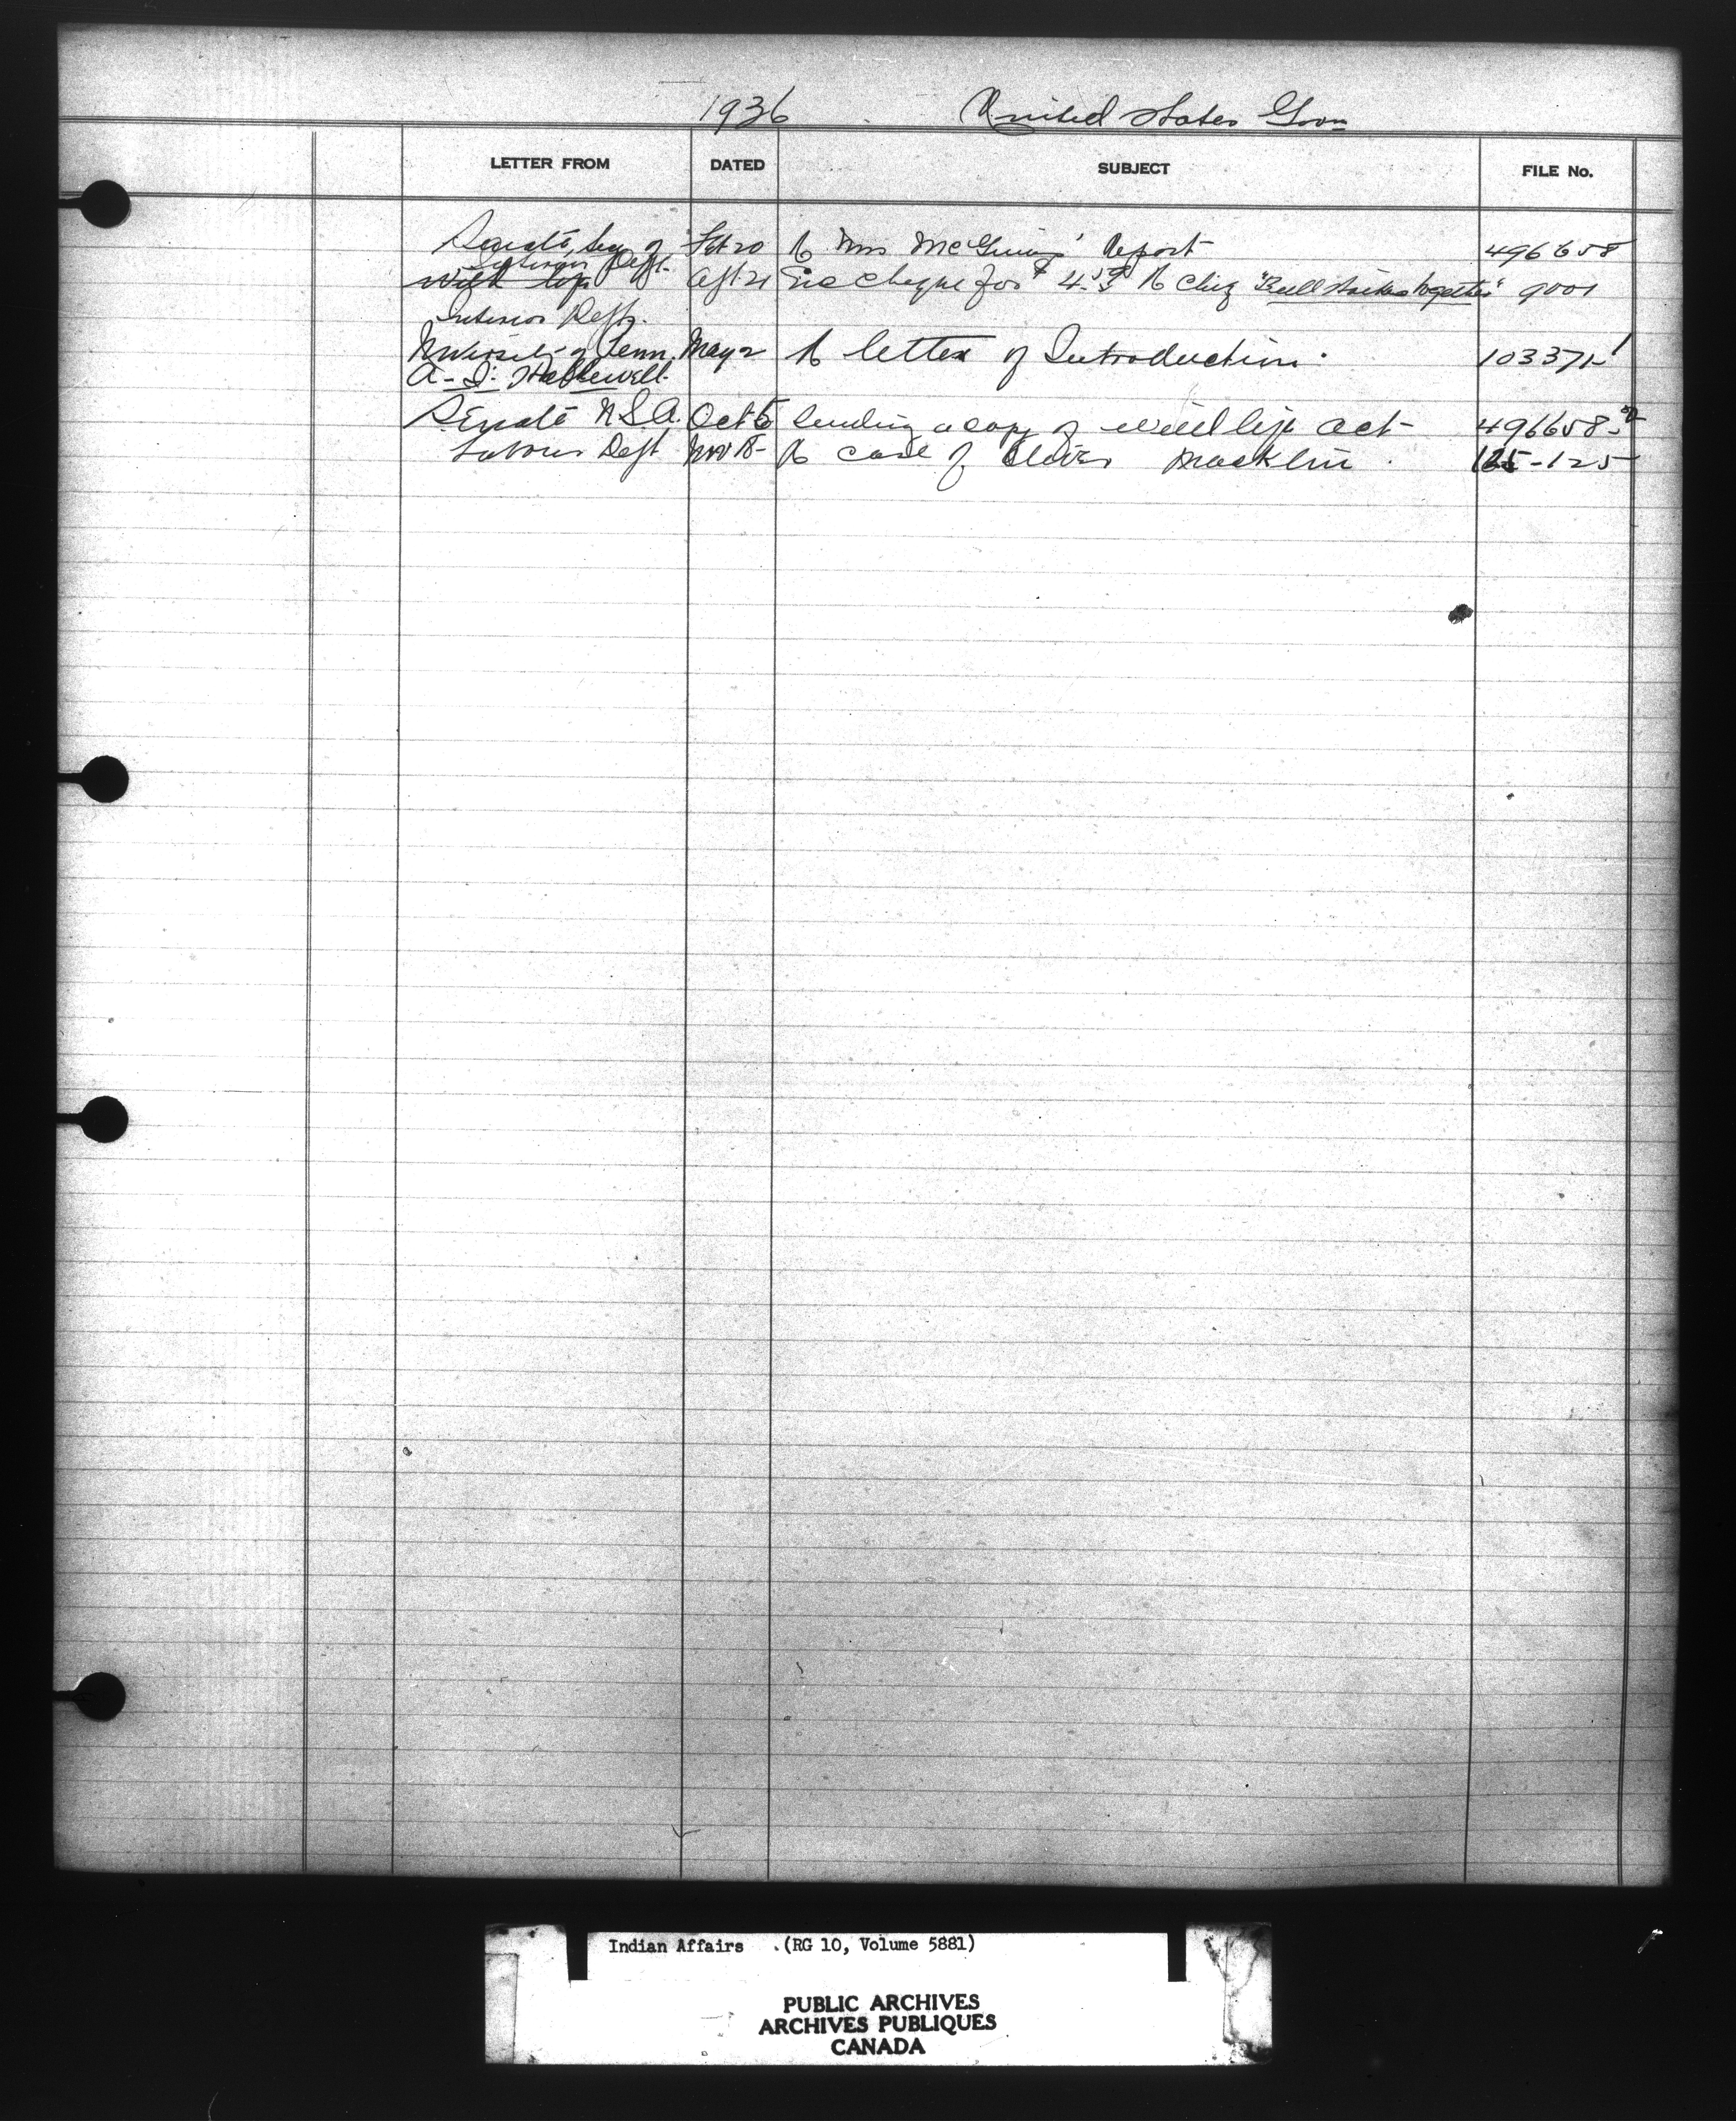 1936 United States Govn
LETTER FROM DATED SUBJECT FILE No.
Senate, Secy of Feb 20 R Mrs McGinnis' Report 496658
Interior Dept.
Apl 21 Enc Cheque for $ 4.50 R Chief "Bull Sticks together" 9001
Interior Dept.
University of Penn. May 2 R letter of Introduction. 103371-1
A. I. Hallowell.
Senate U.S.A. Oct 5 Sending a copy of wild life act 496658-2
Labour Dept Nov 18 R case of Macklin 125-125
Indian Affairs .(RG 10, Volume 5881)
PUBLIC ARCHIVES
ARCHIVES PUBLIQUES
CANADA